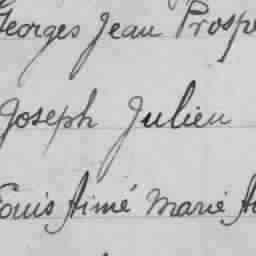 Georges Jean Prospe
Joseph Julien
Louis Aimé Marie